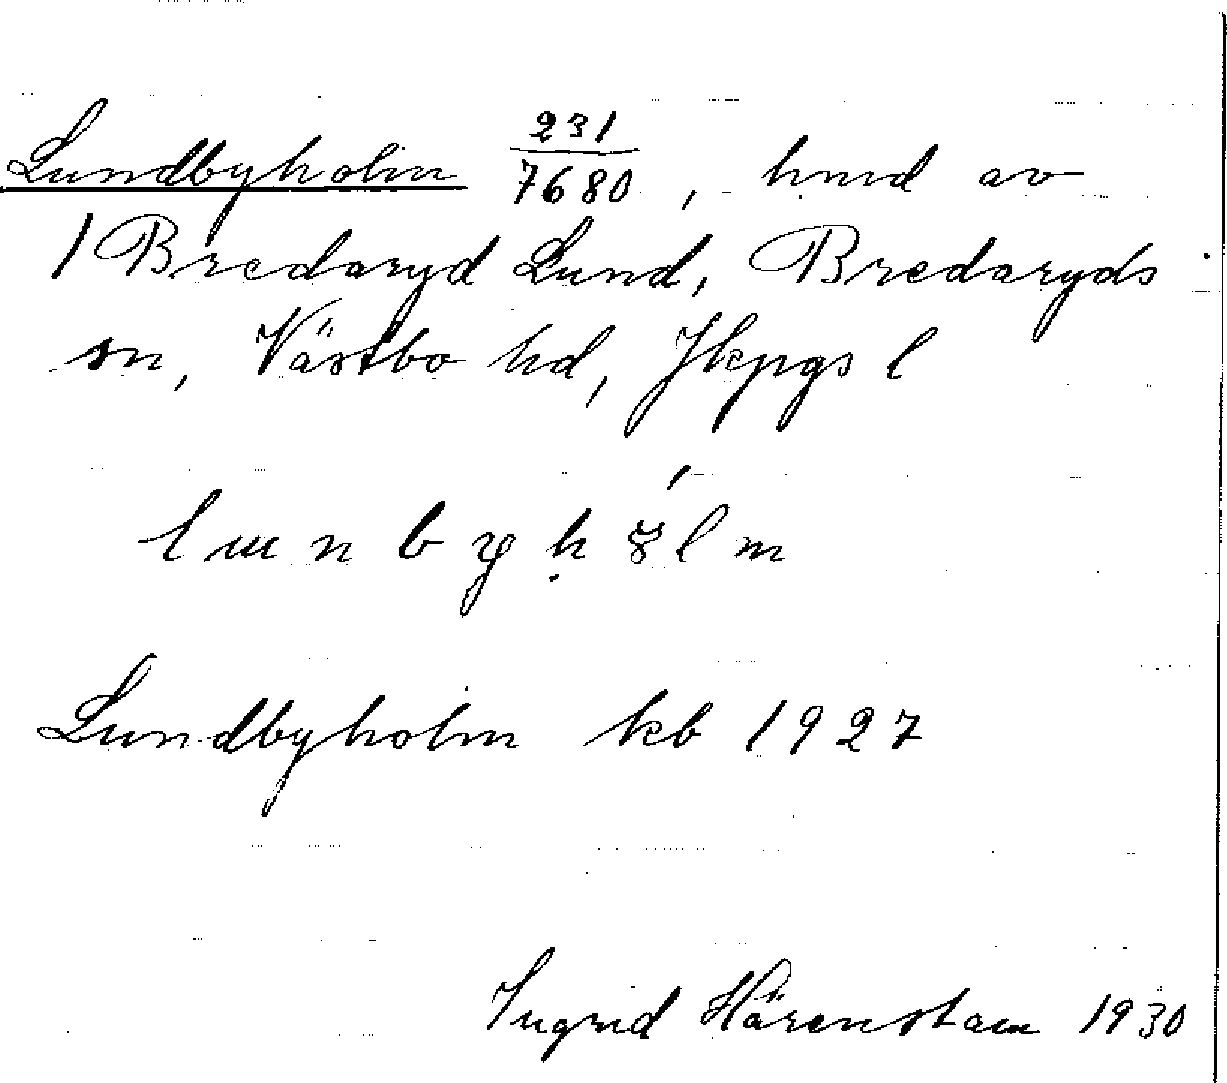 Lundbyholm 231/7680, hmd av
1 Bredaryd Lund, Bredaryds
sn, Västbo hd, Jkpgs l
Lundbyholm kb 1927
Ingrid Härenstam 1930